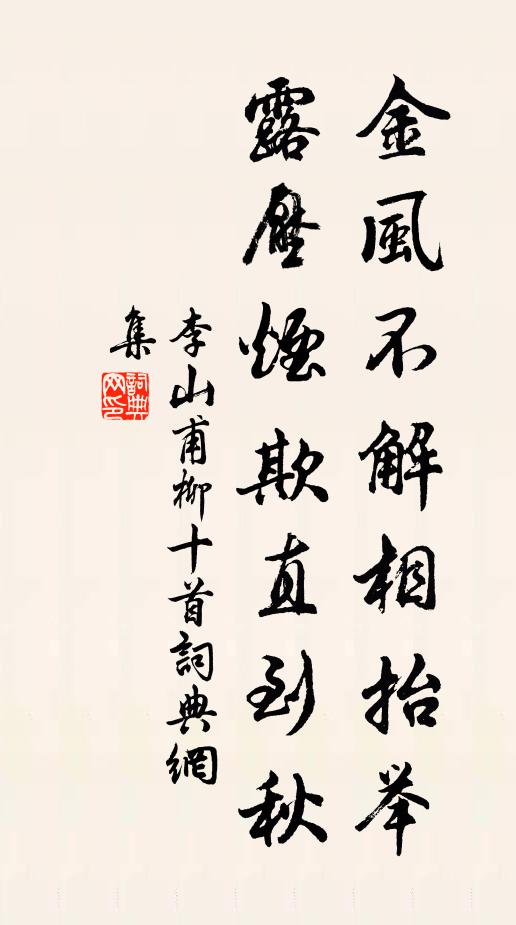 金風不解相抬举
露壓煙欺直到秋
李山甫柳十首詞典網
集
詞典网印